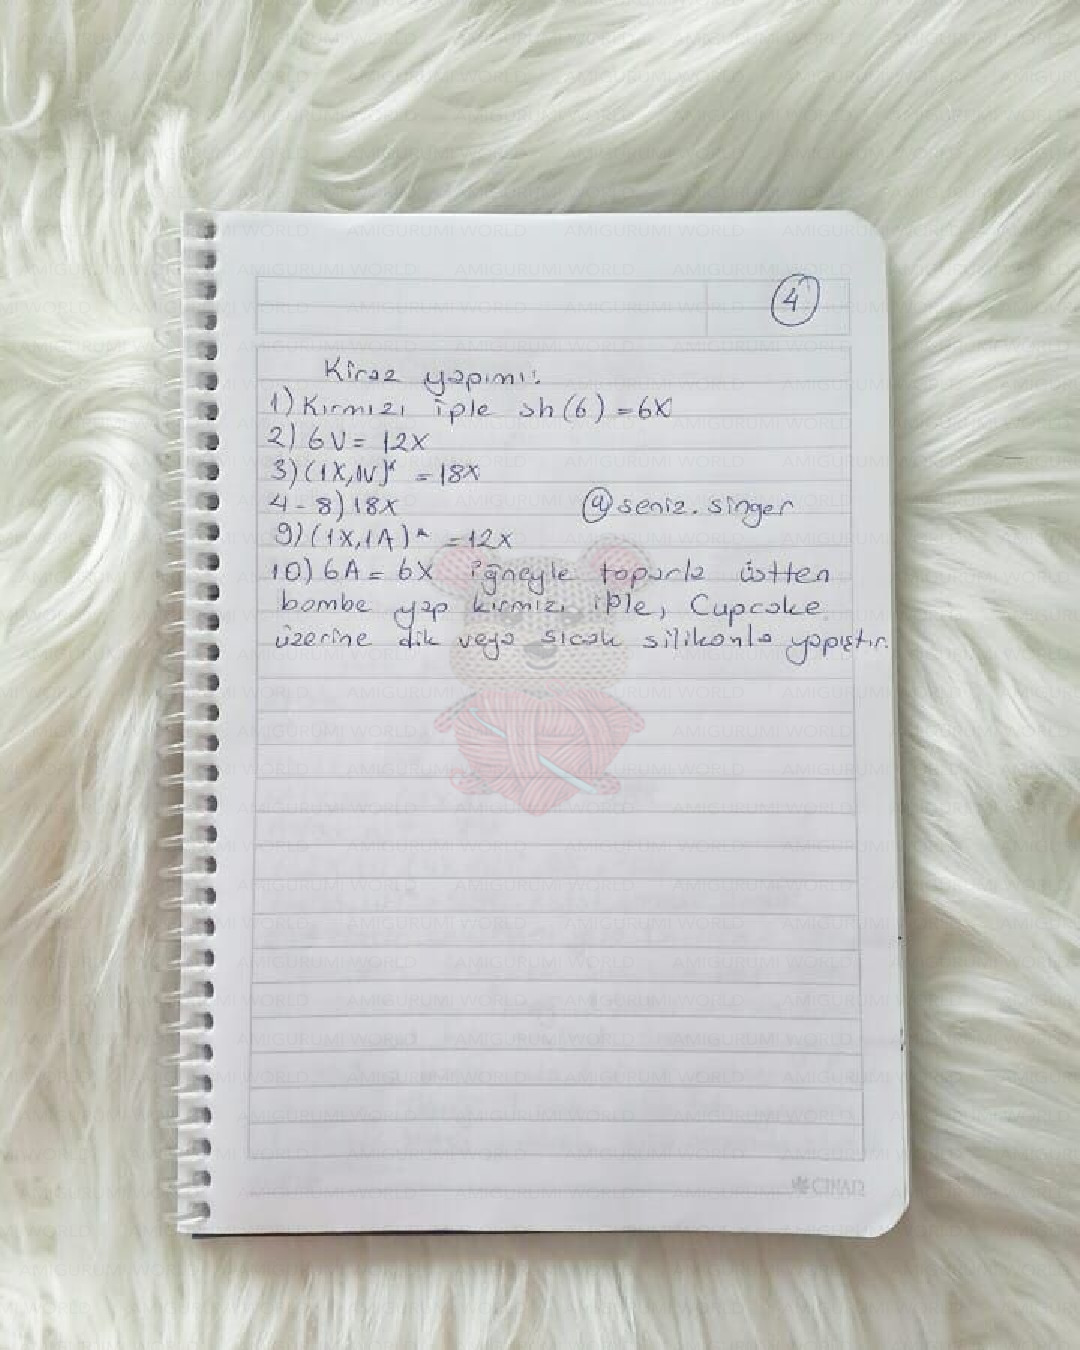 4
Kiraz yapımı:
1) Kırmızı iple sh(6) = 6X
2) 6V = 12X
3) (1X,1V)* = 18X
4-8) 18X
@seniz.singer
9) (1X,1A)* = 12X
10) 6A = 6X iğneyle toparla üstten
bombe yap kırmızı iple, Cupcake
üzerine dik veya sıcak silikonla yapıştır.
AMIGURUMI WORLD